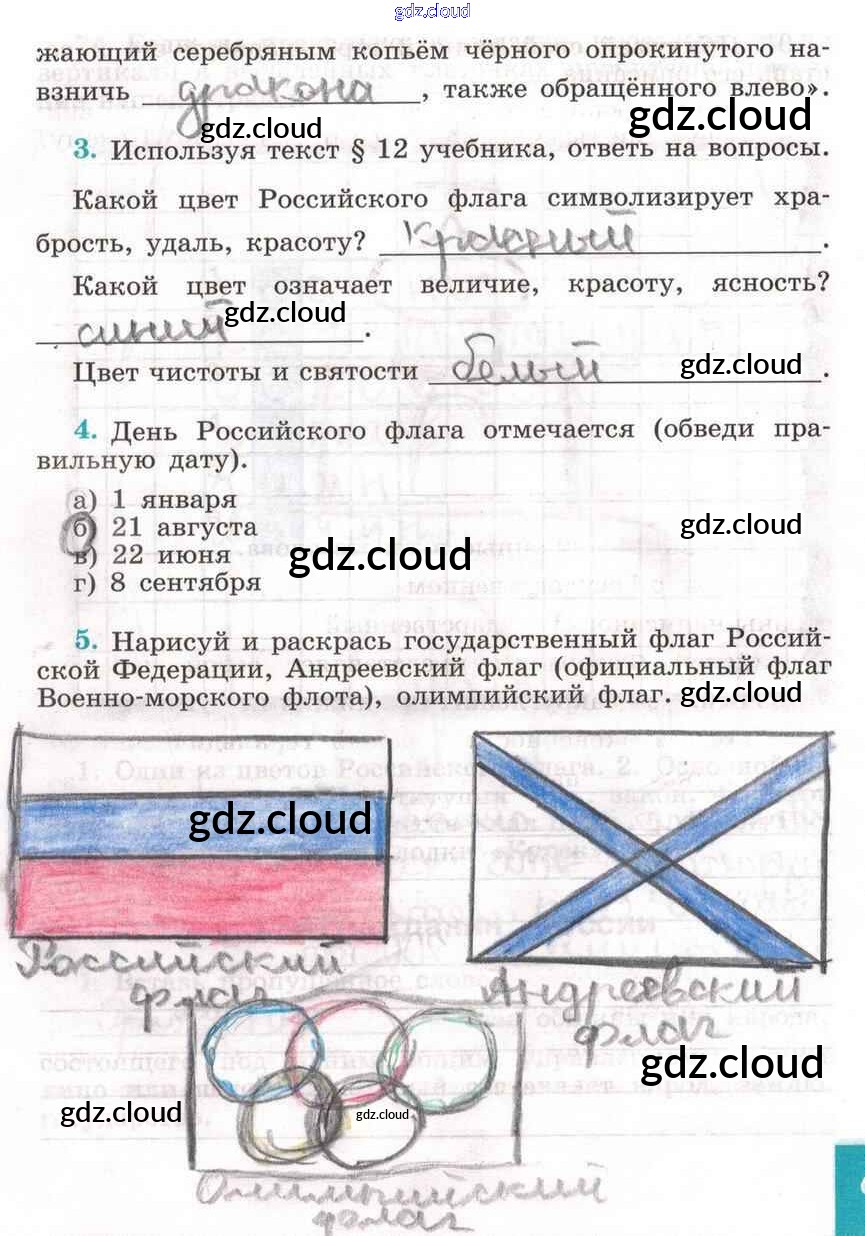 gdz.cloud
жающий серебряным копьём чёрного опрокинутого на-
взничь дракона, также обращённого влево».
gdz.cloud
gdz.cloud
3. Используя текст § 12 учебника, ответь на вопросы.
Какой цвет Российского флага символизирует хра-
брость, удаль, красоту? красный.
Какой цвет означает величие, красоту, ясность?
синий.
gdz.cloud
Цвет чистоты и святости белый.
gdz.cloud
4. День Российского флага отмечается (обведи пра-
вильную дату).
а) 1 января
б) 21 августа
в) 22 июня
г) 8 сентября
gdz.cloud
gdz.cloud
5. Нарисуй и раскрась государственный флаг Россий-
ской Федерации, Андреевский флаг (официальный флаг
Военно-морского флота), олимпийский флаг.
gdz.cloud
gdz.cloud
Российский
флаг
Андреевский
флаг
gdz.cloud
gdz.cloud
gdz.cloud
Олимпийский
флаг